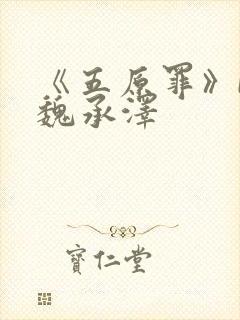 《五原罪》
魏承澤
寶仁堂